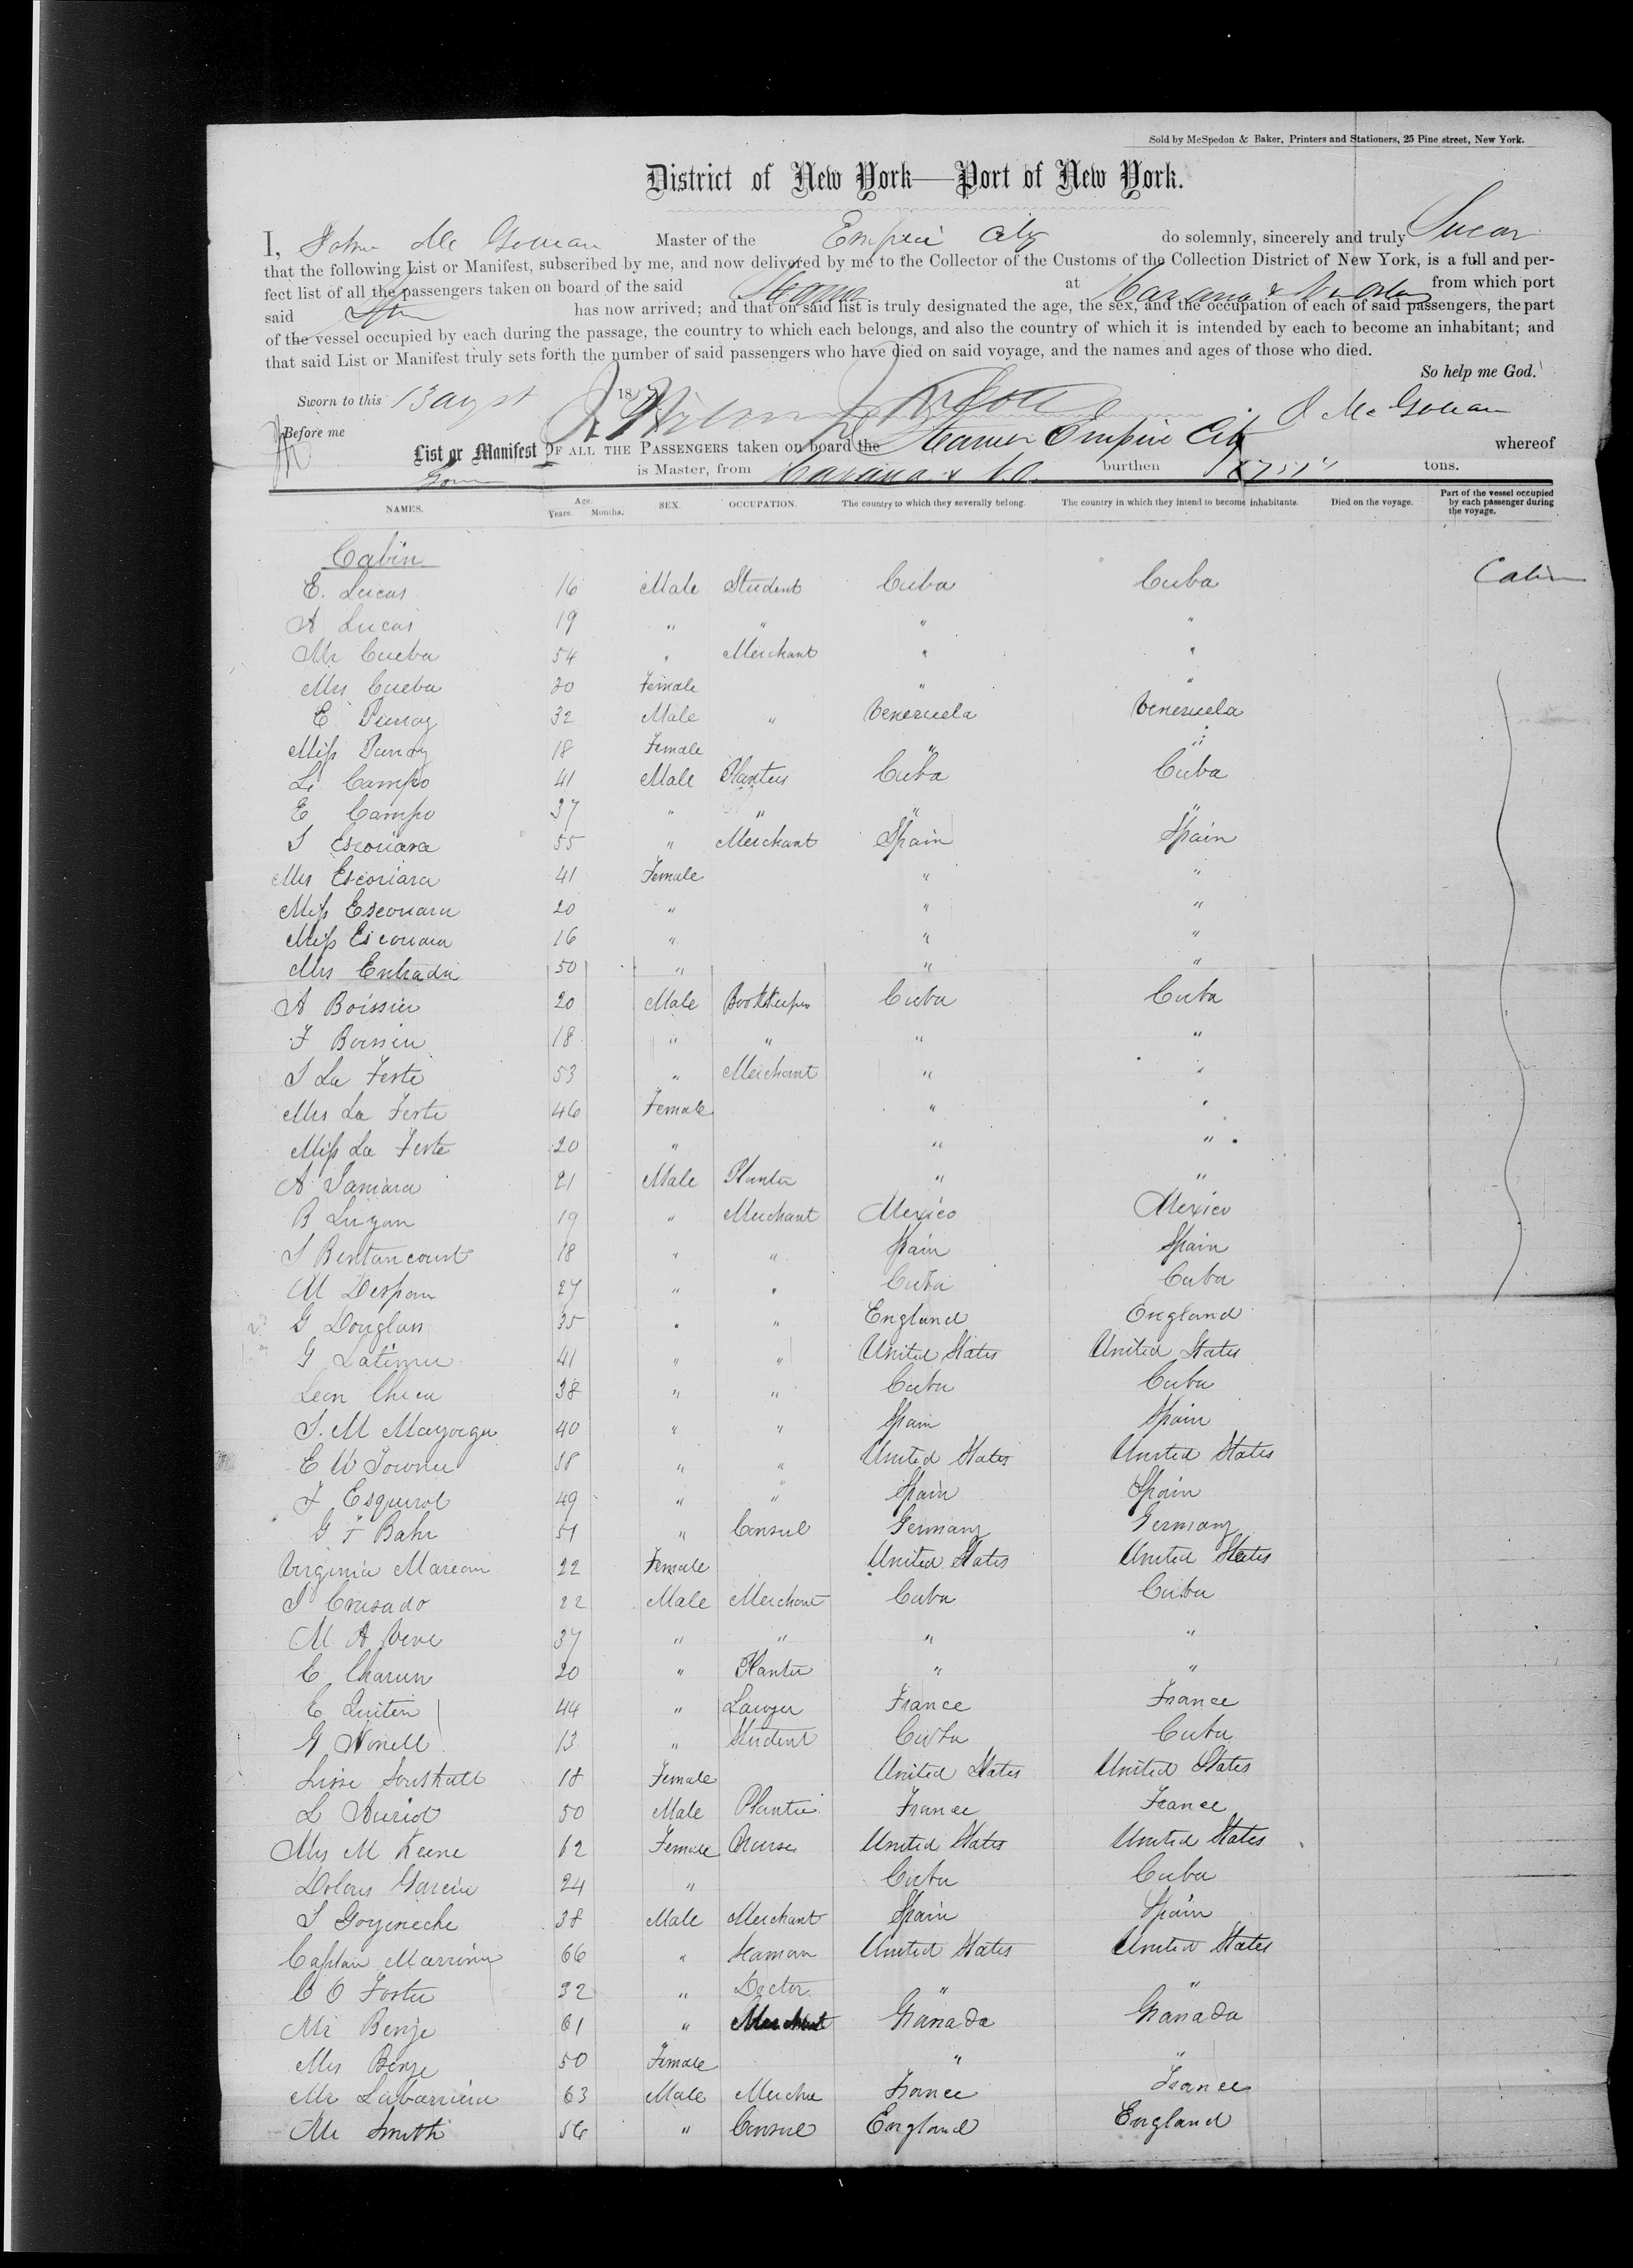 Sold by McSpedon & Baker, Printers and Stationers, 25 Pine street, New York.
District of New York—Port of New York.
I, John Mc Gowan Master of the Empire City do solemnly, sincerely and truly Swear
that the following List or Manifest, subscribed by me, and now delivered by me to the Collector of the Customs of the Collection District of New York, is a full and per-
fect list of all the passengers taken on board of the said Steamer at Havana & N Orleans from which port
said has now arrived; and that on said list is truly designated the age, the sex, and the occupation of each of said passengers, the part
of the vessel occupied by each during the passage, the country to which each belongs, and also the country of which it is intended by each to become an inhabitant; and
that said List or Manifest truly sets forth the number of said passengers who have died on said voyage, and the names and ages of those who died.
So help me God.
Sworn to this 13 augst 18 J McGowan
Before me
List or Manifest OF ALL THE PASSENGERS taken on board the Steamer Empire City whereof
is Master, from Havana & N.O. burthen tons.
NAMES. Age. Years. Months. SEX. OCCUPATION. The country to which they severally belong. The country in which they intend to become inhabitants. Died on the voyage. Part of the vessel occupied by each passenger during the voyage.
Cabin
E. Lucas 16 Male Student Cuba Cuba Cabin
A Lucas 19 " " " "
Mr Cueba 54 " Merchant " "
Mrs Cueba 20 Female " "
E 32 Male " Venezuela Venezuela
Miss 18 Female " "
L Campo 41 Male Planters Cuba Cuba
E Campo 37 " " " "
S Escoriara 55 " Merchant Spain Spain
Mrs Escoriara 41 Female " "
Miss Escoriara 20 " " "
Miss Escoriara 16 " " "
Mrs Entrada 50 " " "
A Boissier 20 Male BookKeeper Cuba Cuba
F Boissier 18 " " " "
S La Feste 53 " Merchant " "
Mrs La Feste 46 Female " "
Miss La Feste 20 " " "
A 21 Male Planter " "
B Luzan 19 " Merchant Mexico Mexico
S Bentancourt 18 " " Spain Spain
M Despau 27 " " Cuba Cuba
G Douglass 35 " " England England
G Latimer 41 " " United States United States
Leon 38 " " Cuba Cuba
S. M Mayorga 40 " " Spain Spain
E W Towner 38 " " United States United States
F Esquirol 49 " " Spain Spain
G F Bahr 51 " Consul Germany Germany
Virginia 22 Female United States United States
S Crusado 22 Male Merchant Cuba Cuba
M A Vere 37 " " " "
C Charun 20 " Planter " "
E Quitin 44 " Lawyer France France
G Nonell 13 " Student Cuba Cuba
18 Female United States United States
L Auriol 50 Male Planter France France
Mrs M Keene 62 Female Nurse United States United States
Dolores Garcia 24 " Cuba Cuba
S Goyeneche 38 Male Merchant Spain Spain
Captain 66 " Seaman United States United States
C O Foster 32 " Doctor " "
Mr Benje 61 " Merchant Granada Granada
Mrs Benje 50 Female " "
Mr Labarriere 63 Male Mercha France France
Mr Smith 56 " Consul England England